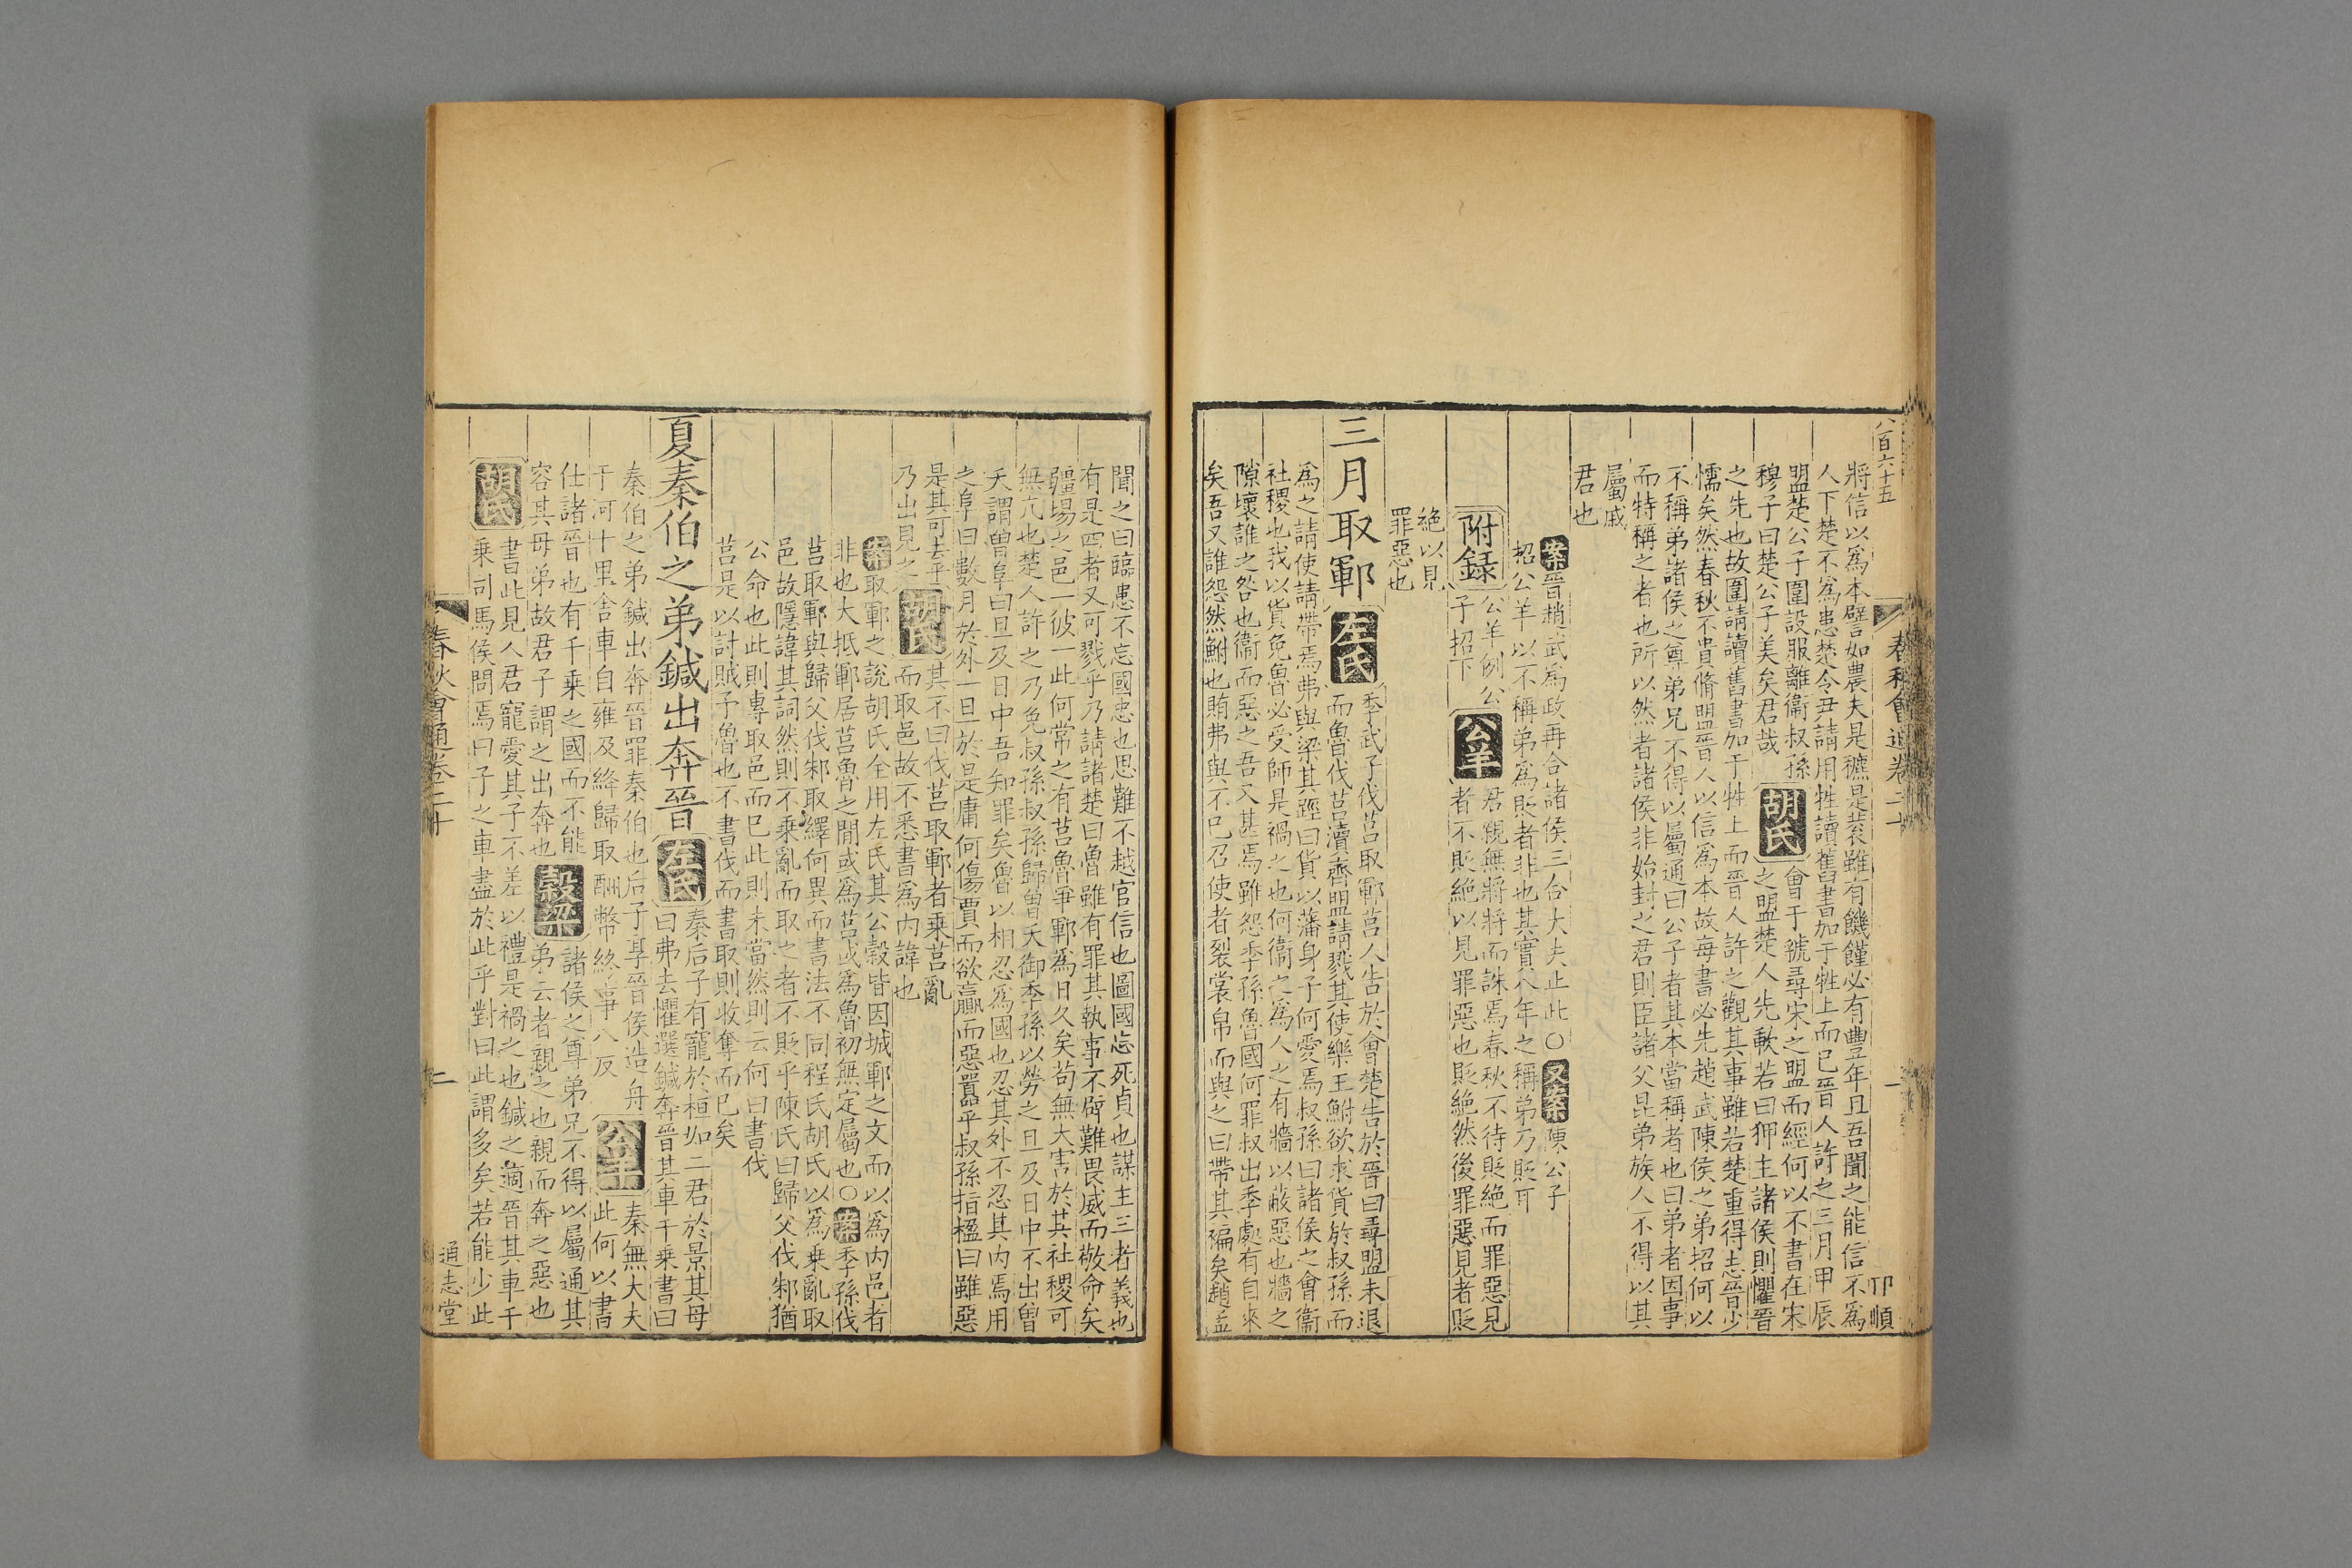 八百六十五
春秋會通卷二十
一
邝順
將信以爲本譬如農夫是穮是蓘雖有饑饉必有豐年且吾聞之能信不爲
人下楚不爲患楚令尹請用牲讀舊書加于牲上而已晉人許之三月甲辰
盟楚公子圍設服離衞叔孫
穆子曰楚公子美矣君哉
胡氏
會于虢尋宋之盟而經何以不書在宋
之盟楚人先歃若曰狎主諸侯則懼晉
之先也故圍請讀舊書加于牲上而晉人許之觀其事雖若楚重得志晉少
懦矣然春秋不貴脩盟晉人以信爲本故每書必先趙武陳侯之弟招何以
不稱弟諸侯之尊弟兄不得以屬通曰公子者其本當稱者也曰弟者因事
而特稱之者也所以然者諸侯非始封之君則臣諸父昆弟族人不得以其
屬戚
君也
案晉趙武爲政再合諸侯三合大夫止此○又案陳公子
招公羊以不稱弟爲貶者非也其實八年之稱弟乃貶耳
附録
公羊例公
子招下
公羊
君親無將將而誅焉春秋不待貶絕而罪惡見
者不貶絕以見罪惡也貶絕然後罪惡見者貶
絕以見
罪惡也
三月取鄆
左氏
季武子伐莒取鄆莒人告於會楚告於晉曰尋盟未退
而魯伐莒瀆齊盟請戮其使樂王鮒欲求貨於叔孫而
爲之請使請帶焉弗與梁其踁曰貨以藩身子何愛焉叔孫曰諸侯之會衞
社稷也我以貨免魯必受師是禍之也何衞之爲人之有牆以蔽惡也牆之
隙壞誰之咎也衞而惡之吾又甚焉雖怨季孫魯國何罪叔出季處有自來
矣吾又誰怨然鮒也賄弗與不已召使者裂裳帛而與之曰帶其褊矣趙孟
聞之曰臨患不忘國忠也思難不越官信也圖國忘死貞也謀主三者義也
有是四者又可戮乎乃請諸楚曰魯雖有罪其執事不辟難畏威而敬命矣
疆埸之邑一彼一此何常之有莒魯爭鄆爲日久矣苟無大害於其社稷可
無亢也楚人許之乃免叔孫叔孫歸曾夭御季孫以勞之旦及日中不出曾
夭謂曾阜曰旦及日中吾知罪矣魯以相忍爲國也忍其外不忍其內焉用
之阜曰數月於外一旦於是庸何傷賈而欲贏而惡囂乎叔孫指楹曰雖惡
是其可去乎
乃出見之
胡氏
其不曰伐莒取鄆者乘莒亂
而取邑故不悉書爲內諱也
案取鄆之說胡氏全用左氏其公穀皆因城鄆之文而以爲內邑者
非也大抵鄆居莒魯之間或爲莒或爲魯初無定屬也○案季孫伐
莒取鄆與歸父伐邾取繹何異而書法不同程氏胡氏以爲乘亂取
邑故隱諱其詞然則不乘亂而取之者不貶乎陳氏曰歸父伐邾猶
公命也此則專取邑而已此則未當然則云何曰書伐
莒是以討賊予魯也不書伐而書取則收奪而已矣
夏秦伯之弟鍼出奔晉
左氏
秦后子有寵於桓如二君於景其母
曰弗去懼選鍼奔晉其車千乘書曰
秦伯之弟鍼出奔晉罪秦伯也后子享晉侯造舟
于河十里舍車自雍及絳歸取酬幣終事八反
公羊
秦無大夫
此何以書
仕諸晉也有千乘之國而不能
容其母弟故君子謂之出奔也
穀梁
諸侯之尊弟兄不得以屬通其
弟云者親之也親而奔之惡也
胡氏
書此見人君寵愛其子不差以禮是禍之也鍼之適晉其車千
乘司馬侯問焉曰子之車盡於此乎對曰此謂多矣若能少此
春秋會通卷二十
二
通志堂